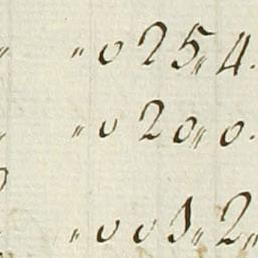 〃 〃0 25〃4.
〃 〃0 20〃0.
〃0 03〃2〃